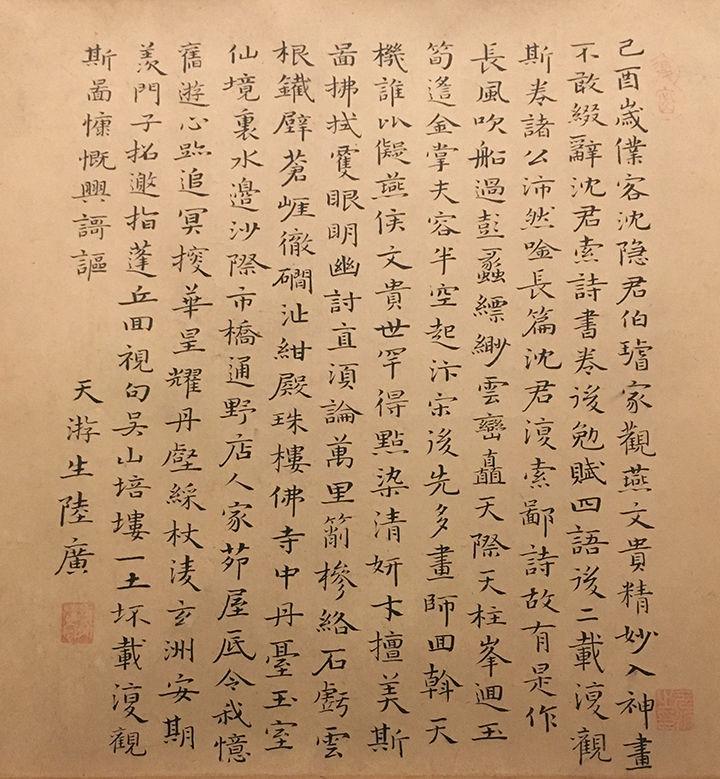 己酉歲僕客沈隐君伯瑨家觀燕文貴精妙入神畫
不敢綴辭沈君索詩書卷後勉賦四語後二載復觀
斯卷諸公沛然唫長篇沈君復索鄙詩故有是作
長風吹船過彭蠡縹緲雲巒矗天際天柱峯迴玉
筍逄金掌夫容半空起汴宋後先多畫師回斡天
機誰比儗燕侯文貴世罕得點染清妍才擅美斯
啚拂拭雙眼眀幽討直湏論萬里箭槮絡石虧雲
根鐵壁蒼崖徹磵沚紺殿珠樓佛寺中丹臺玉室
仙境裏水邊沙際市橋通野店人家茆屋底令我憶
舊游心跡追冥搜華星耀丹壑綵杖凌玄洲安期
羨門子招邀指蓬丘回視句吳山培塿一土坏載復觀
斯啚慷慨興謌謳
天游生陸廣